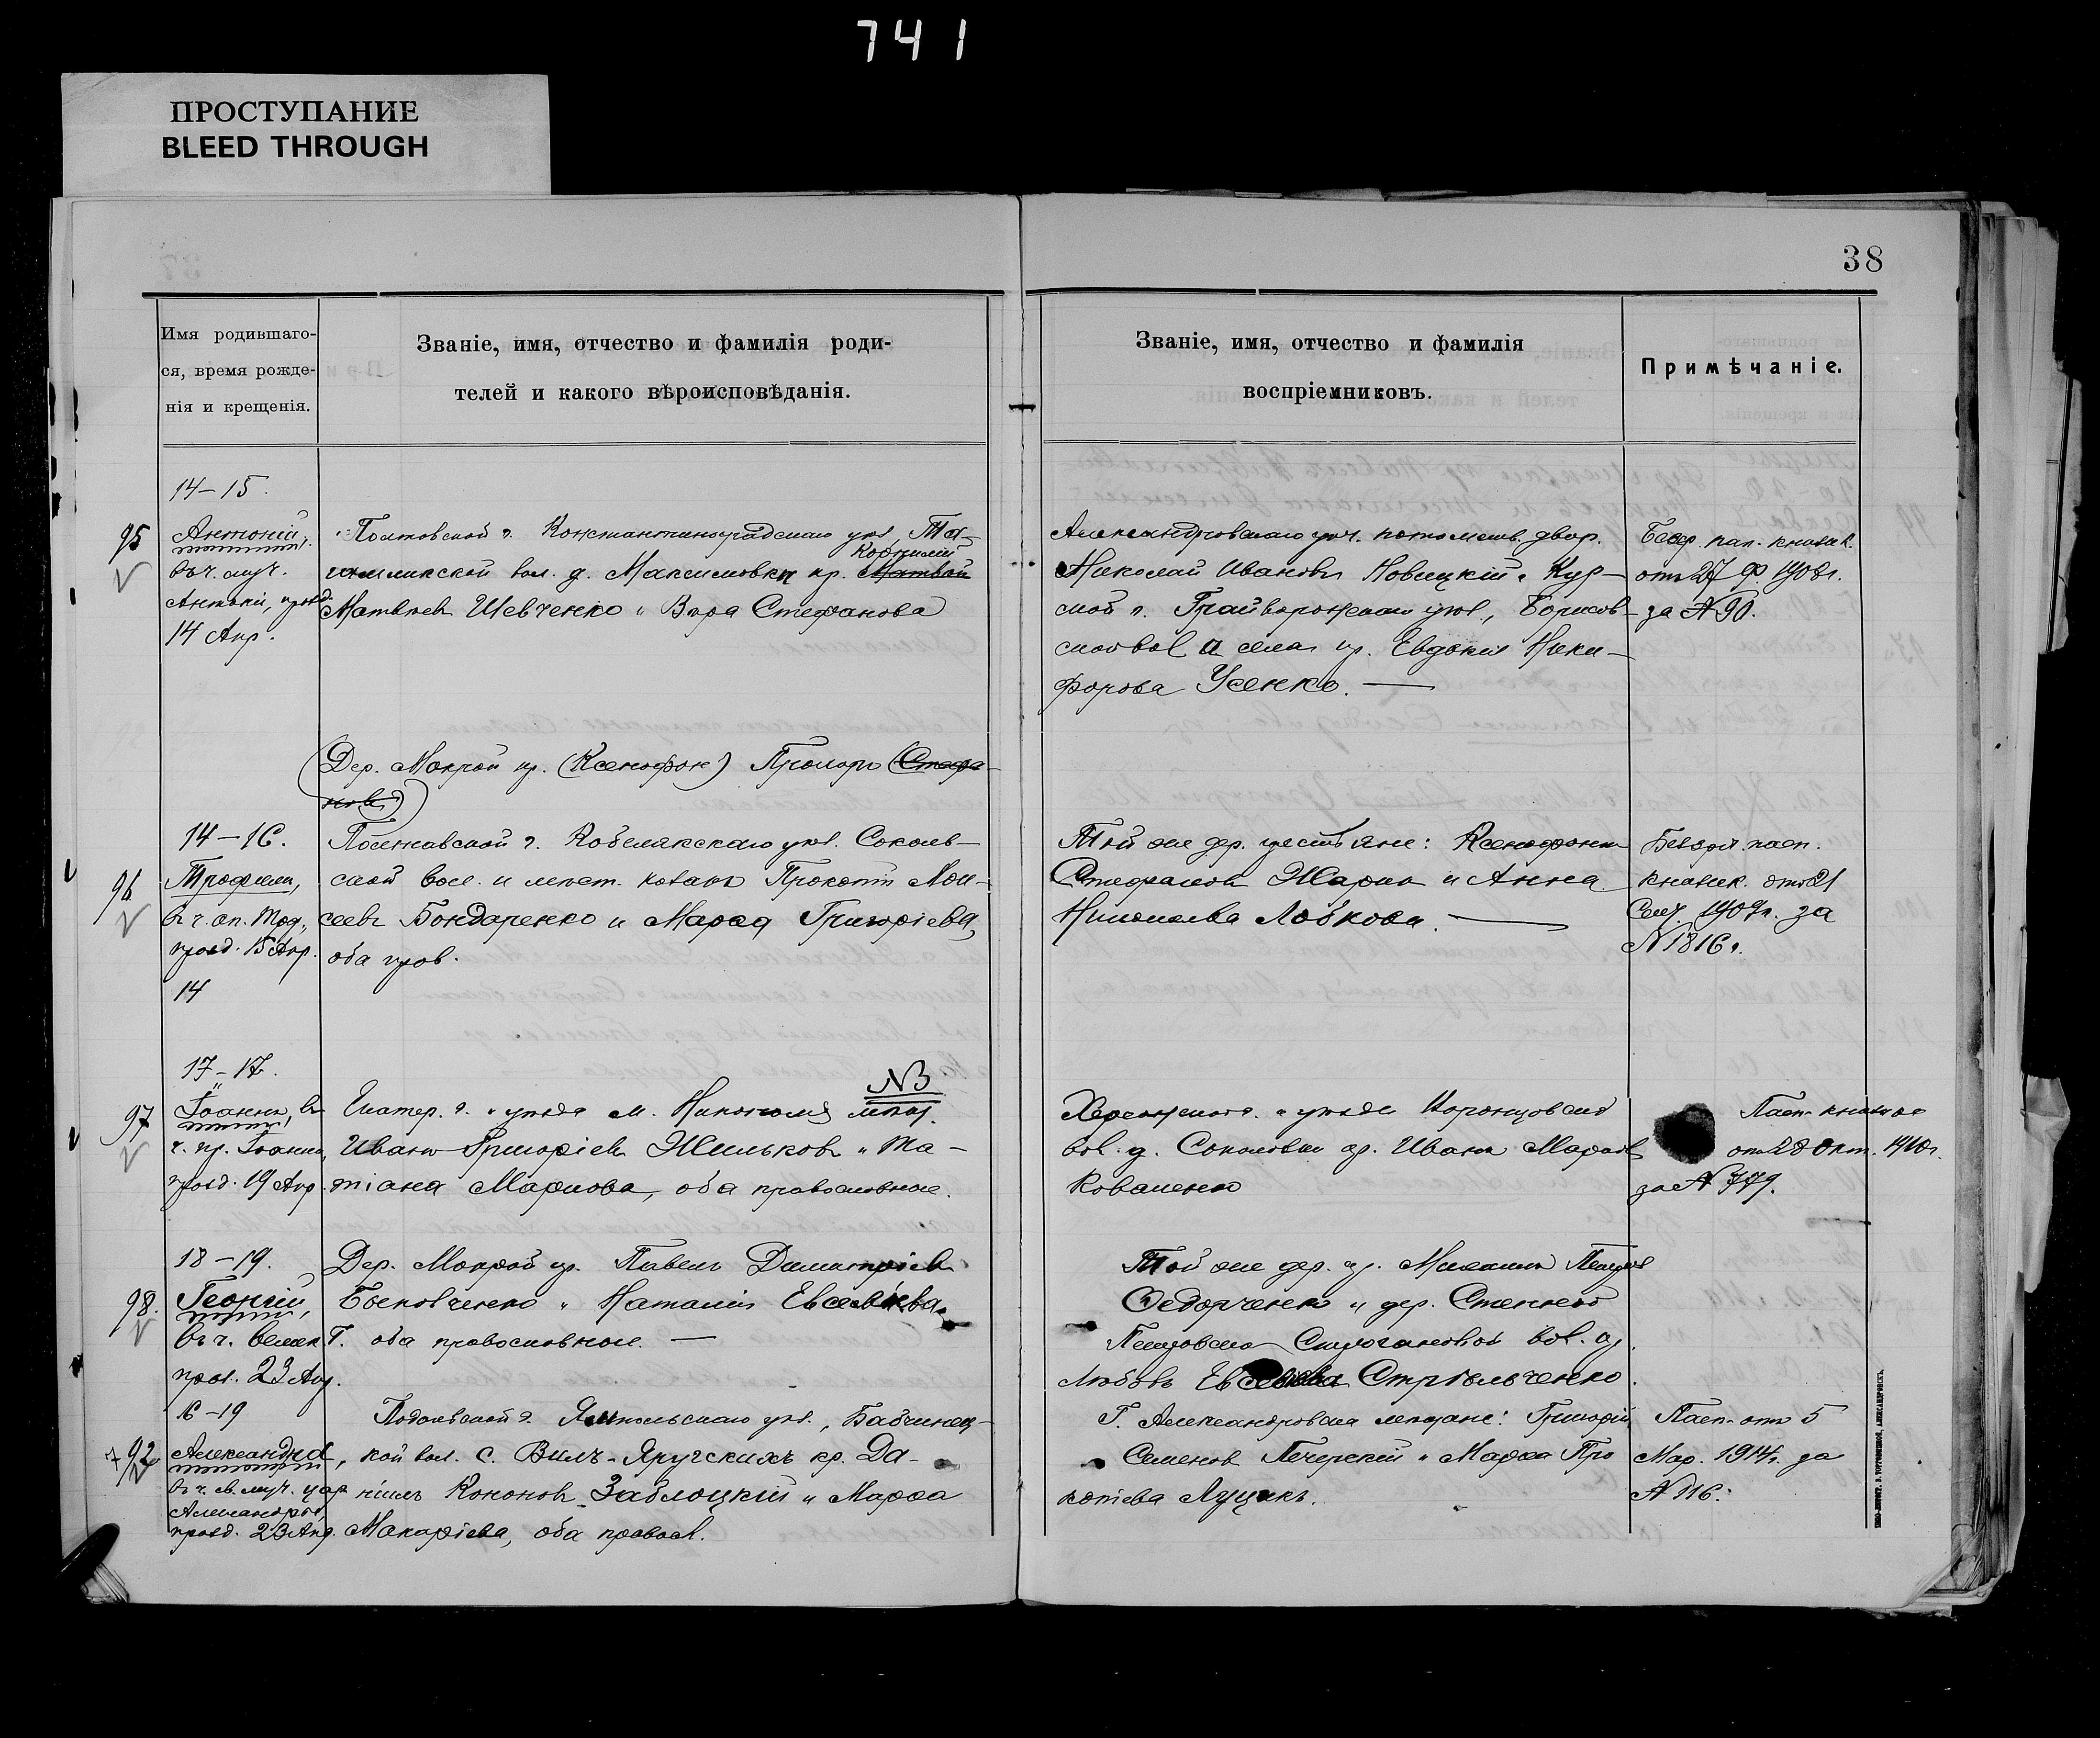 741
ПРОСТУПАНИЕ
BLEED THROUGH
38
Имя родившаго-
ся, время рожде-
нія и крещенія.
Званіе, имя, отчество и фамилія роди-
телей и какого вѣроисповѣданія.
Званіе, имя, отчество и фамилія
воспріемниковъ.
Примѣчаніе.
14–15.
95
Антоній,
въ ч. муч.
Антонія, празд.
14 Апр.
Полтовской г. Константиноградскаго уѣз.
Корнилій
вол. д. Максимовки кр. Матвѣй
Матвѣев Шевченко и Вѣра Стефанова
Александровскаго уѣз. потомств. двор.
Николай Иванов Новицкій и Кур-
ской г. Грайворонскаго уѣзд., Борисов-
ской вол и села кр. Евдокія Ники-
форова Усенко. —
Безср. пас. книжк.
отъ 27 Ф. 1908г.
за № 90.
(Дер. Мокрой кр. (Ксенофон) Прохоръ (Стефа-
нов))
14–16.
96
Трофим,
въ ч. ап. Троф.,
празд. 15 Апр.
14
Полтавской г. Кобелякскаго уѣз. Соколь-
ской вол. и мѣст. козакъ Прокопій Мои-
сеевъ Бондаренко и Марѳа Григоріева,
оба прав.
Той же дер. крестьяне: Ксенофонт
Стефанов Жарко и Анна
Николаева Лобкова. —
Безсрч. пасп.
книжк. отъ 21
Сент. 1909г. за
№ 1816.
17–17.
97
Іоаннъ, въ
ч. пр. Іоанна,
празд. 19 Апр.
NB
Екатер. г. и уѣзда м. Никополя мѣщ.
Иванъ Григоріев Жильков и Та-
тіана Маркова, оба православные.
Херсонской г. и уѣзда Воронцовской
вол. д. кр. Иванъ Марков
Коваленко
Пасп. книжка
от 28 Окт. 1910г.
за № 779.
18–19.
98.
Георгій,
въ ч. велик.
празд. 23 Апр.
Дер. Мокрой кр. Павелъ Димитріев
и Наталія Евсевіева,
Г. оба православные. —
Той же дер. кр. Михаилъ Петров
Ѳедорченко и дер. Степной
Петровско вол. кр.
Любовь Евсевіева Стрѣльченко.
16–19
Александра,
въ ч. св. муч. цар.
Александры,
празд. 23 Апр.
Подольской г. Ямпольскаго уѣз., Бабчинец-
кой вол. с. Вилъ-Яругскихъ кр. Да-
ніилъ Кононовъ Заблоцкій и Марѳа
Макаріева, оба правосл.
Г. Александровска мѣщане: Григорій
Семенов Печерскій и Марѳа Про
копіева Луцикъ.
Пасп. отъ 5
Мар. 1914г. за
№ 116.